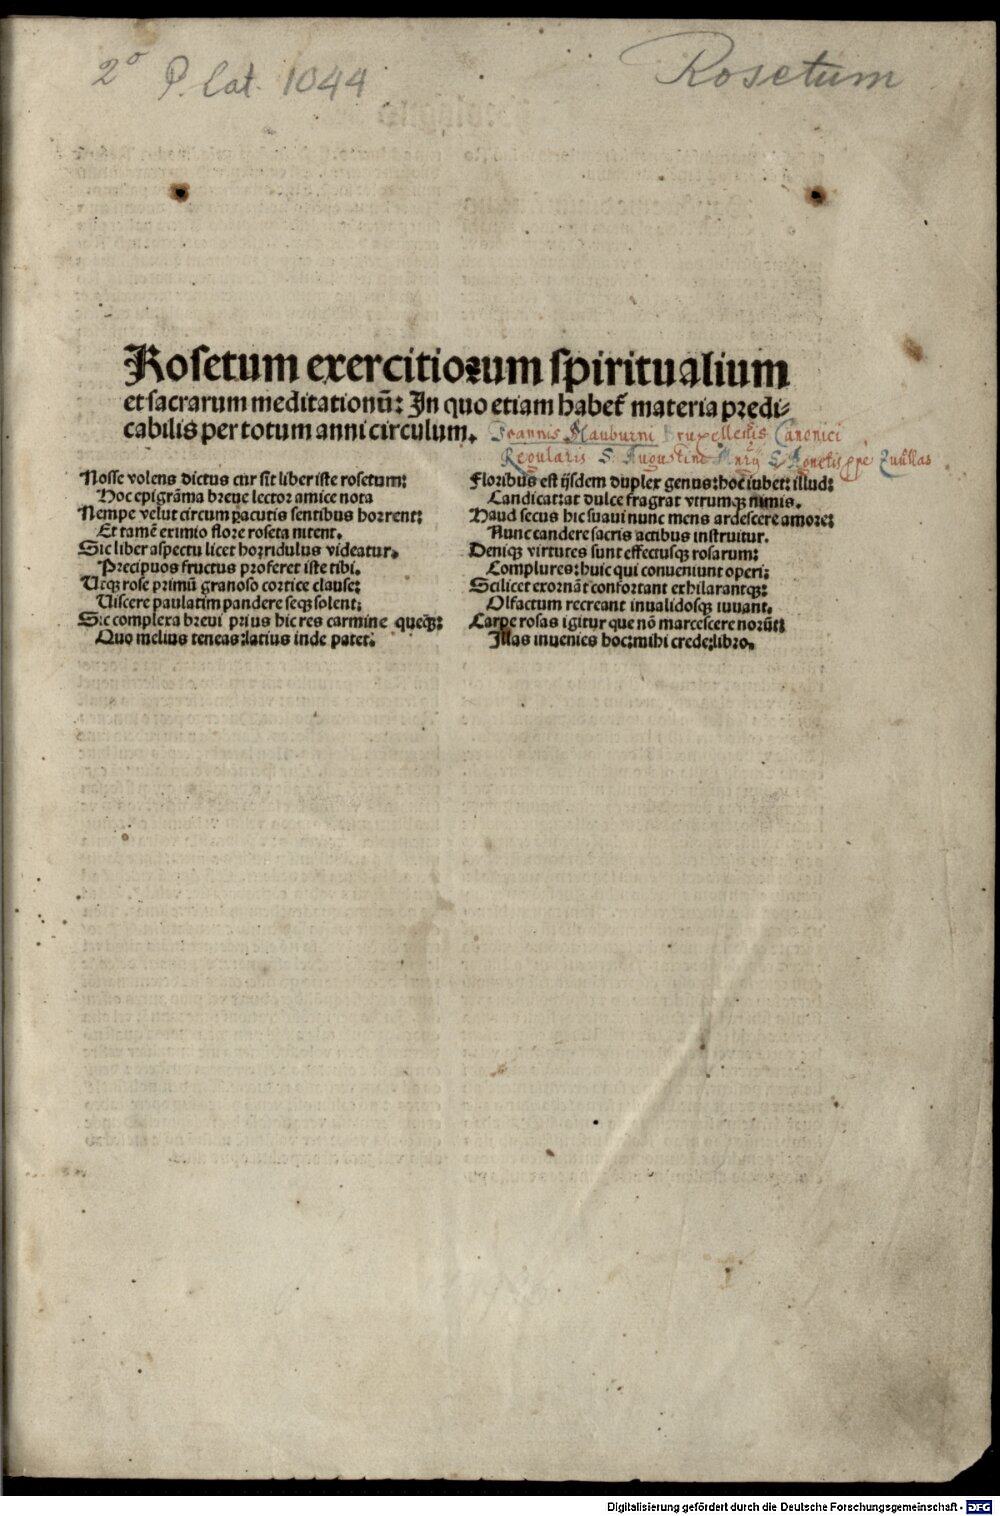 2° P. lat. 1044
Rosetum
Rosetum exercitiorum spiritualium
et sacrarum meditationū: In quo etiam habet᷑ materia predi-
cabilis per totum anni circulum.
Joannis Mauburni Bruxellensis Canonici
Regularis S. Augustini
Nosse volens dictus cur sit liber iste rosetum:
Hoc epigrāma breue lector amice nota
Nempe velut circum p̄acutis sentibus horrent:
Et tamē eximio flore roseta nitent.
Sic liber aspectu licet horridulus videatur.
Precipuos fructus proferet iste tibi.
Utqꝫ rose primū granoso cortice clause:
Uiscere paulatim pandere seqꝫ solent:
Sic complexa breui prius hic res carmine queqꝫ:
Quo melius teneas: latius inde patet:
Floribus est ijsdem duplex genus: hoc iubet: illud:
Candicat: at dulce fragrat vtrumqꝫ nimis.
Haud secus hic suaui nunc mens ardescere amore:
Nunc candere sacris actibus instruitur.
Deniqꝫ virtutes sunt effectusqꝫ rosarum:
Complures: huic qui conueniunt operi:
Scilicet exornāt confortant exhilarantqꝫ:
Olfactum recreant inualidosqꝫ iuuant.
Carpe rosas igitur que nō marcescere norūt:
Illas inuenies hoc: mihi crede: libro.
Digitalisierung gefördert durch die Deutsche Forschungsgemeinschaft - DFG